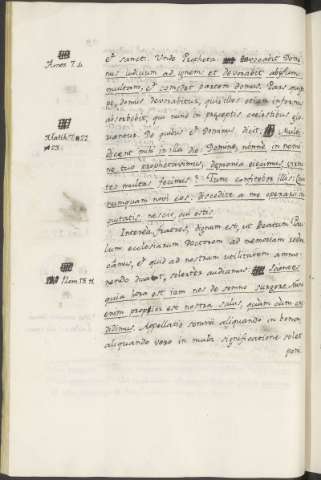 Amos 7. 4.
Matth. 7. 22
23.
Rom. 13. 11
et sancti. Unde Propheta: vocabit Domi-
nus judicium ad ignem et devorabit abyssum
multam, et comedet partem domus. Pars quip-
pe domus devorabitur, quia illos etiam infernus
absorbebit, qui nunc in praeceptis coelestibus glo-
riantur. De quibus et Dominus dicit: Multi
dicent mihi in illa die: Domine, nonne in nomi-
ne tuo prophetavimus, daemonia ejecimus, virtu-
tes multas fecimus? Tunc confitebor illis: Quia
numquam novi eos: discedite a me operarii in-
iquitatis nescio, qui estis.
Interea, fratres, dignum est, ut Beatum Pau-
lum ecclesiarum Doctorem ad memoriam revo-
cemus, et quid ad nostram utilitatem annu-
endo ducat, solerter audiamus.
quia hora est jam nos de somno surgere. Nunc
enim propior est nostra salus, quam cum cre-
didimus. Appellatio somni aliquando in bonam,
aliquando vero in mala significatione solet
pon-